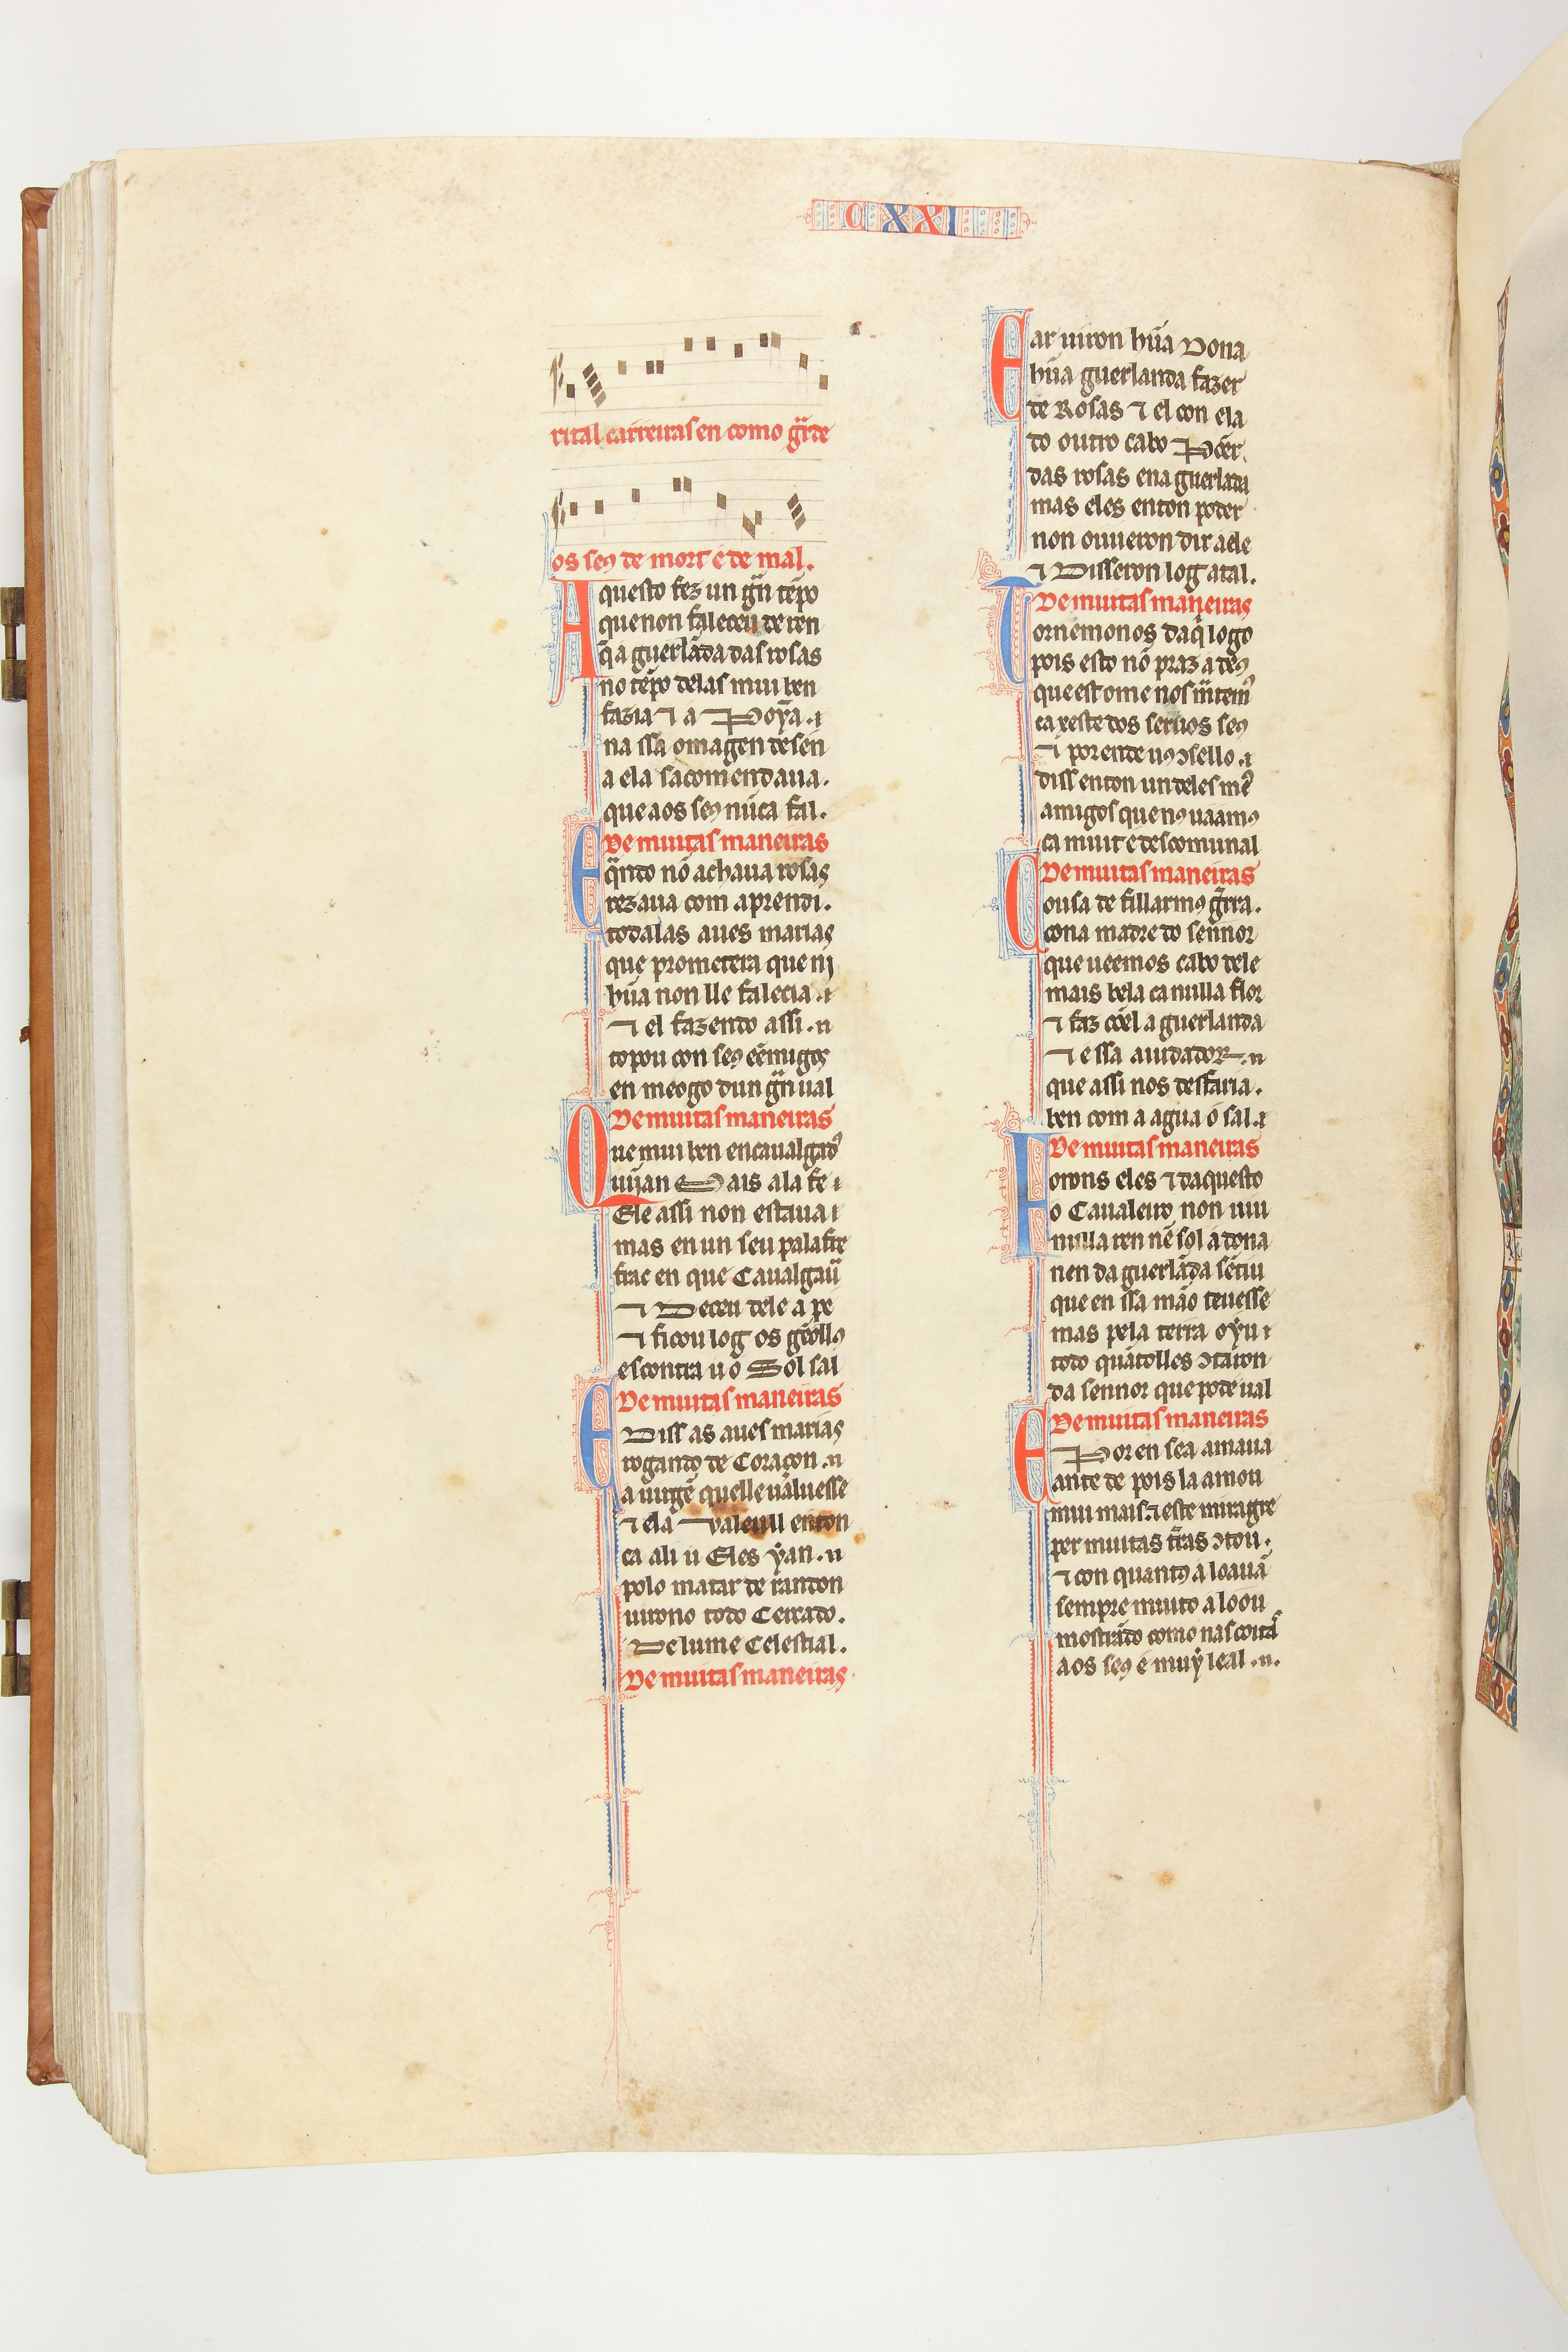 CXXI
rital carreiras en como g̃rde
os seꝯ de mort e de mal.
Aquesto fez un grã tẽpo
que non faleceu de ren
q̃ a guerlãda das rosas
no tẽpo delas mui ben
fazia ⁊ a Poỹa .ı
na ssa omagen de sen
a ela sacomendaua.
que aos seꝯ nũca fal.
De muitas maneiras
E q̃ndo nõ achaua rosas
rezaua com aprendi.
todalas aues marias
que prometera que nĩ
hũa non lle falecia .ı
⁊ el fazendo assi .n
topou con seꝯ eẽmigos
en meogo dun grã ual
De muitas maneiras
Que mui ben encaualgadꝯ
uijan Mais ala fe ı
Ele assi non estaua ı
mas en un seu palafre
frac en que Caualgaũ
⁊ Deceu dele a pe
⁊ ficou log os gẽollꝯ
escontra u o Sol sal
De muitas maneiras
E Diss as aues marias
rogando de Coraçon .n
a uirgẽ que lle ualuesse
⁊ ela valeull enton
ca ali u Eles ỹan .n
polo matar de randon
uirono todo Cercado.
De lume Celestial.
De muitas maneiras
E ar uiron hũa Dona
hũa guerlanda fazer
de Rosas ⁊ el con ela
do outro cabo Põer
das rosas ena guerlãda
mas eles enton poder
non ouueron dir a ele
⁊ Disseron log atal.
De muitas maneiras
Tornemonos daq̃l logo
pois esto nõ praz a deꝯ
que est ome nos m̃temꝯ
ca xeste dos seruos seꝯ
⁊ porende uꝯ ɔsello .ı
diss enton un deles mẽ
amigos que nꝯ uaamꝯ
ca muit e descomunal
De muitas maneiras
Cousa de fillarmꝯ g̃rra.
cona madre do sennor
que ueemos cabo dele
mais bela ca nulla flor
⁊ faz cõel a guerlanda
⁊ e ssa aiudador .n
que assi nos desfaria.
ben com a agua o sal .ı
De muitas maneiras
Forons eles ⁊ daquesto
o Caualeiro non uiu
nulla ren nẽ sol a dona
nen da guerlãda sẽtiu
que en ssa mão teuesse
mas pela terra oỹu ı
todo quãtolles ɔtaron
da sennor que pode ual
De muitas maneiras
E Poren sea amaua
ante de pois la amou
mui mais .⁊ este miragre
per muitas t̃ras ɔtou.
⁊ con quantꝯ a loauã
sempre muito a loou
mostrãdo como nas coitã
aos seꝯ e muỹ leal .n.